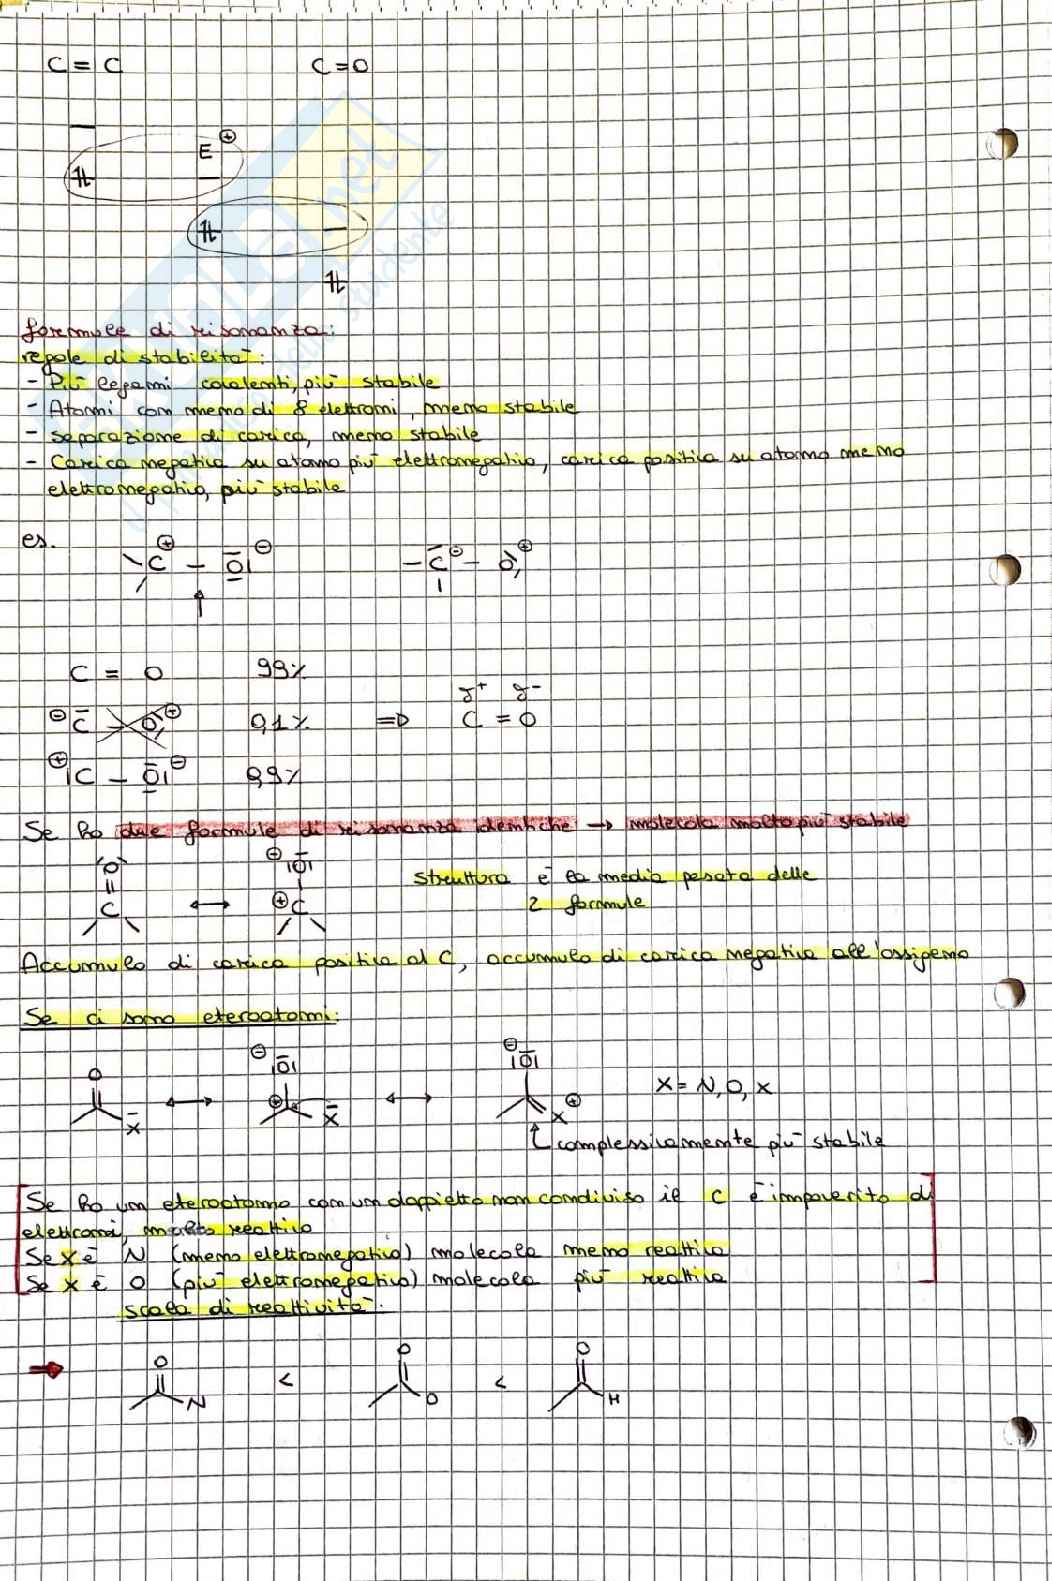 C = C C = O
E ⊕
formule di risonanza:
regole di stabilità:
- Più legami covalenti, più stabile
- Atomi con meno di 8 elettroni, meno stabile
- Separazione di carica, meno stabile
- Carica negativa su atomo più elettronegativo, carica positiva su atomo meno
elettronegativo, più stabile
es.
C⊕ - O⊖ - C⊖ - O⊕
C = O 99%
δ+ δ-
⊖C - O⊕ 0,1% => C = O
⊕C - O⊖ 0,9%
Se ho due formule di risonanza identiche → molecola molto più stabile
O ⊖ O
struttura è la media pesata delle
C ↔ ⊕C 2 formule
Accumulo di carica positiva al C, accumulo di carica negativa all'ossigeno
Se ci sono eteroatomi:
O ⊖ O ⊖ O
X ↔ ⊕ X ↔ X⊕ X = N, O, X
complessivamente più stabile
Se ho un eteroatomo con un doppietto non condiviso il C è impoverito di
elettroni, molto reattivo
Se X è N (meno elettronegativo) molecola meno reattiva
Se X è O (più elettronegativo) molecola più reattiva
scala di reattività:
O O O
N < O < H